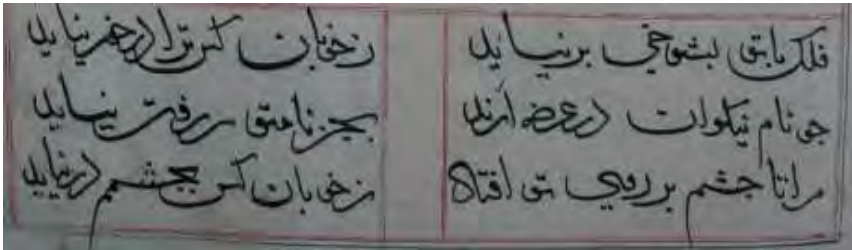 فلک با تو بشوخی بر نیاید زخوبان کس ترا درخور نیاید
جو نام نیکوان در عرضه آرند بجز نام تو نیاید
مرا تا جشم بر روی تو افتاد زخوبان کس بجشمم در نیاید